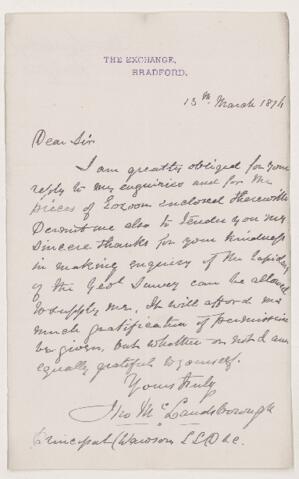 THE EXCHANGE,
BRADFORD.
13th March 1876
Dear Sir
I am greatly obliged for your
reply to my enquiries and for the
pieces of Eozoon enclosed therewith
Permit me also to tender you my
sincere thanks for your kindness
in making enquiry if the lapidary
of the Geol Survey can be allowed
to supply me. It will afford me
much gratification if permission
be given, but whether or not I am
equally grateful to yourself.
Yours truly
Mc Landsborough
Principal Dawson LLD &c.